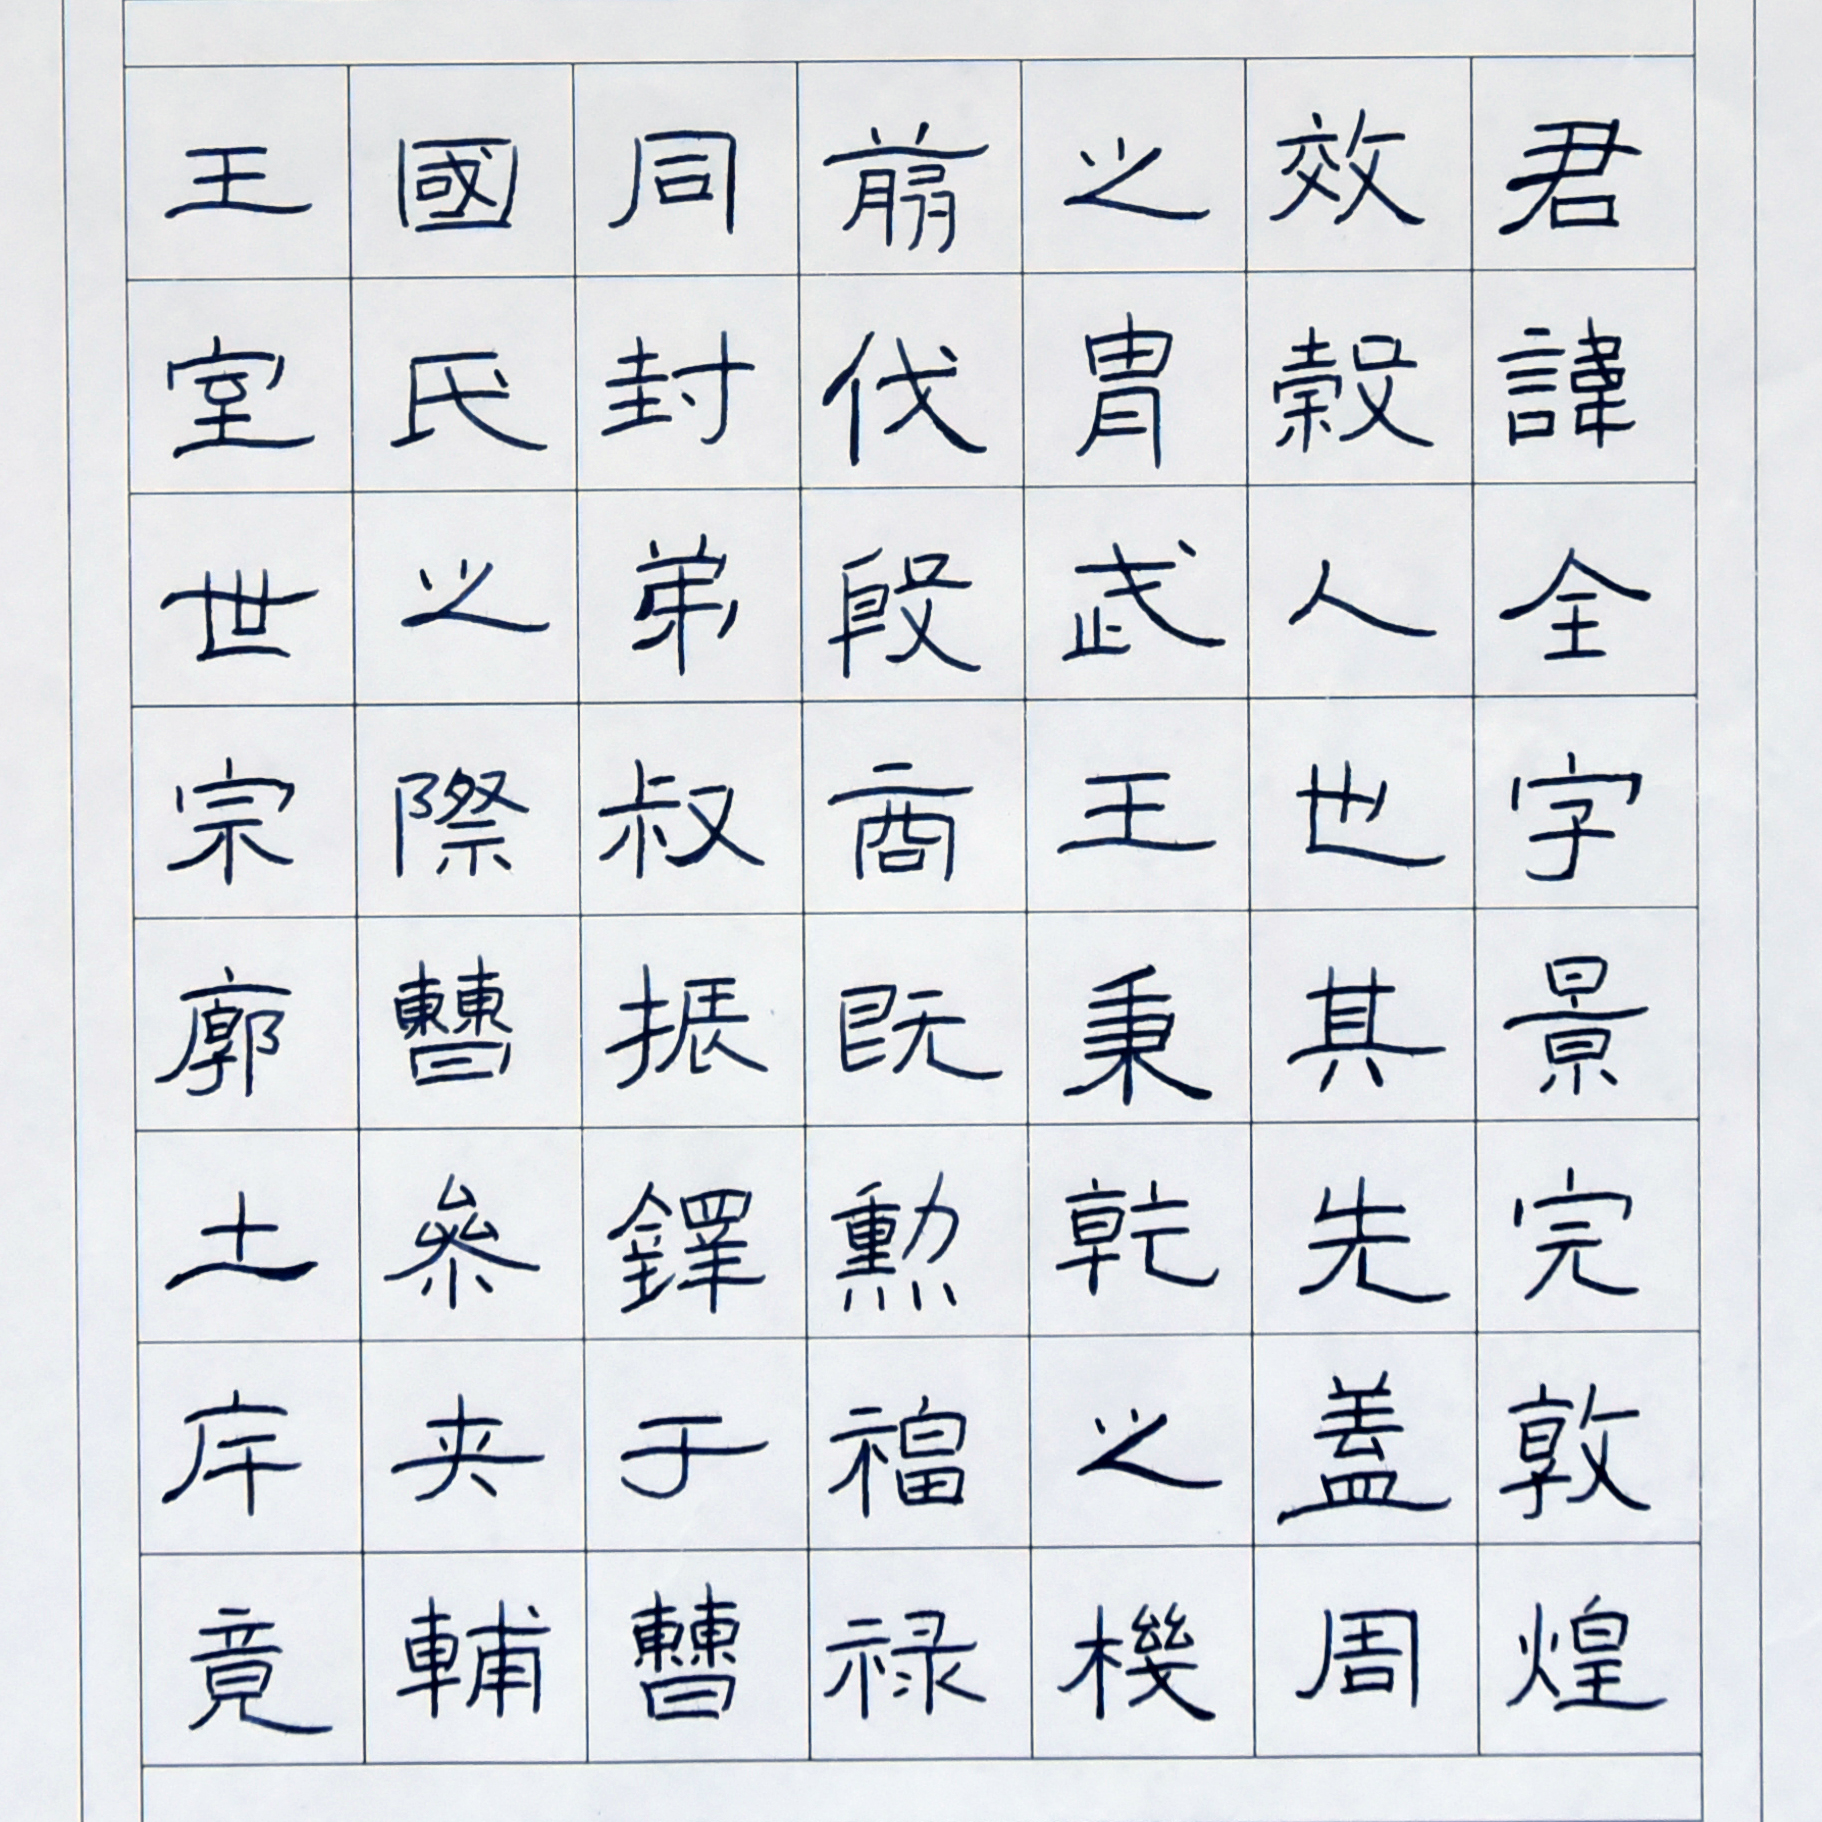 君諱全字景完敦煌
效穀人也其先蓋周
之胄武王秉乾之機
翦伐殷商既勲福禄
同封弟叔振鐸于曹
國氏之際曹參夾輔
王室世宗廓土斥竟